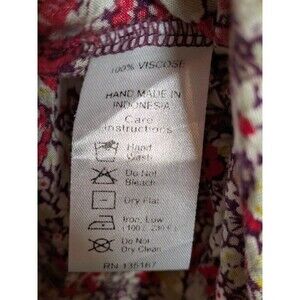 100% VISCOSE
HAND MADE IN
INDONESIA
Care
Instructions
Hand
Wash
Do Not
Bleach
Dry Flat
Iron, Low
Do Not
Dry Clean
RN 135167